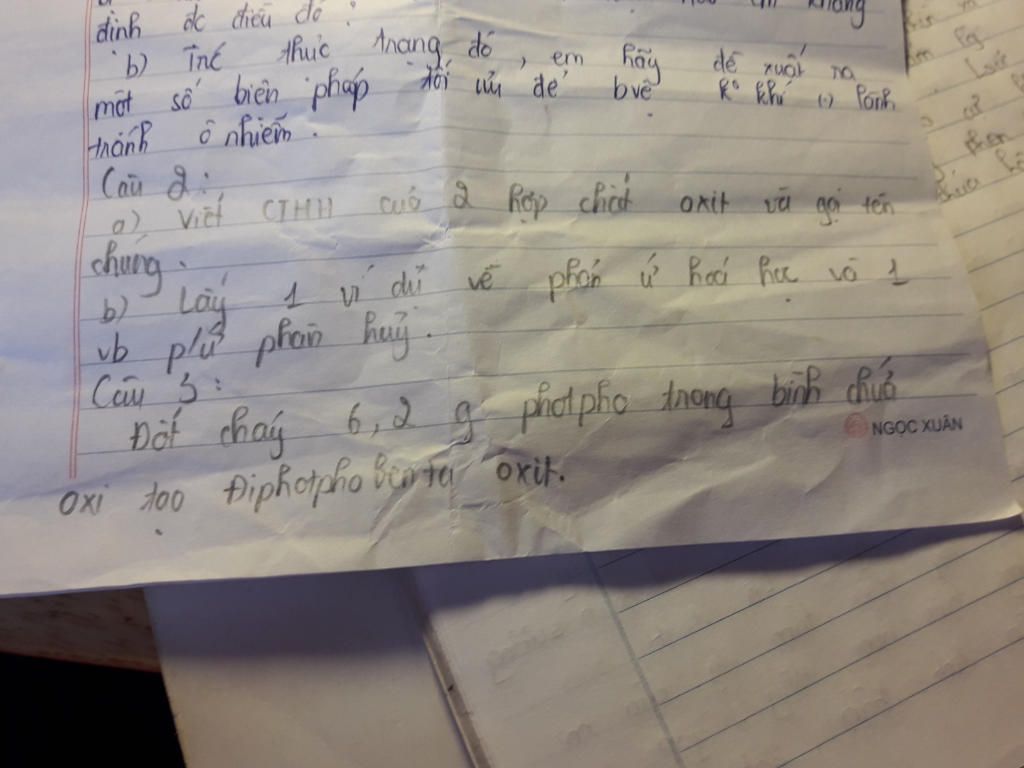 định đc điều đó ?
b) Từ thực trạng đó, em hãy đề xuất ra
một số biện pháp tối ưu để bvệ k° khí
tránh ô nhiễm.
Câu 2:
a) Viết CTHH của 2 hợp chất oxit và gọi tên
chúng.
b) Lấy 1 ví dụ về phản ứ hoá học và 1
vb p/ứ phân huỷ.
Câu 3:
Đốt cháy 6,2 g photpho trong bình chứa
NGỌC XUÂN
oxi tạo Điphotpho penta oxit.